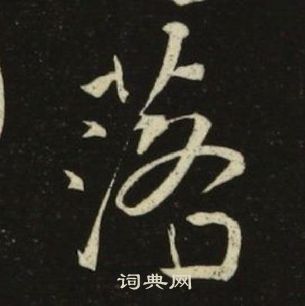 落
词典网